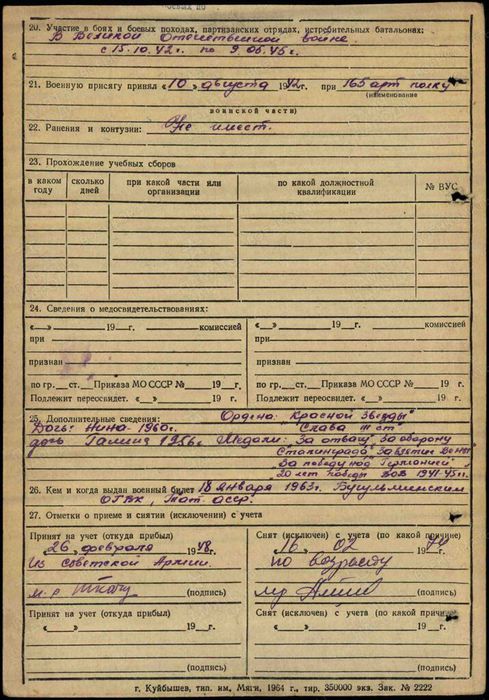 20. Участие в боях и боевых походах, партизанских отрядах, истребительных батальонах:
В Великой Отечественной войне
с 15.10.42г. по 9.05.45г.
21. Военную присягу принял «10» августа 1942г. при 165 арт полку
(наименование
воинской части)
22. Ранения и контузии: Не имеет.
23. Прохождение учебных сборов
в каком году
сколько дней
при какой части или организации
по какой должностной квалификации
№ ВУС
24. Сведения о медосвидетельствованиях:
«__» 19__г. комиссией
при
признан
по гр. ст. Приказа МО СССР № 19 г.
Подлежит переосвидет. «__» 19__г.
«__» 19__г. комиссией
при
признан
по гр. ст. Приказа МО СССР № 19 г.
Подлежит переосвидет. «__» 19__г.
25. Дополнительные сведения: Ордена: "Красной Звезды"
Дочь: Нина - 1960г. "Слава III ст"
дочь Галина 1956г. Медали: За отвагу, За оборону
Сталинграда, За взятие
За победу над Германией
20 лет победы ВОВ 1941-45гг.
26. Кем и когда выдан военный билет 18 января 1963г. Бугульминским
ОГВК, Тат. АССР
27. Отметки о приеме и снятии (исключении) с учета
Принят на учет (откуда прибыл)
«26» февраля 1948г.
из Советской Армии.
м-р
(подпись)
Снят (исключен) с учета (по какой причине)
«16» 02 1970
по возрасту
(подпись)
Принят на учет (откуда прибыл)
«__» 19__г.
(подпись)
Снят (исключен) с учета (по какой причине)
«__» 19__г.
(подпись)
г. Куйбышев, тип. им. Мяги, 1964 г., тир. 350000 экз. Зак. № 2222